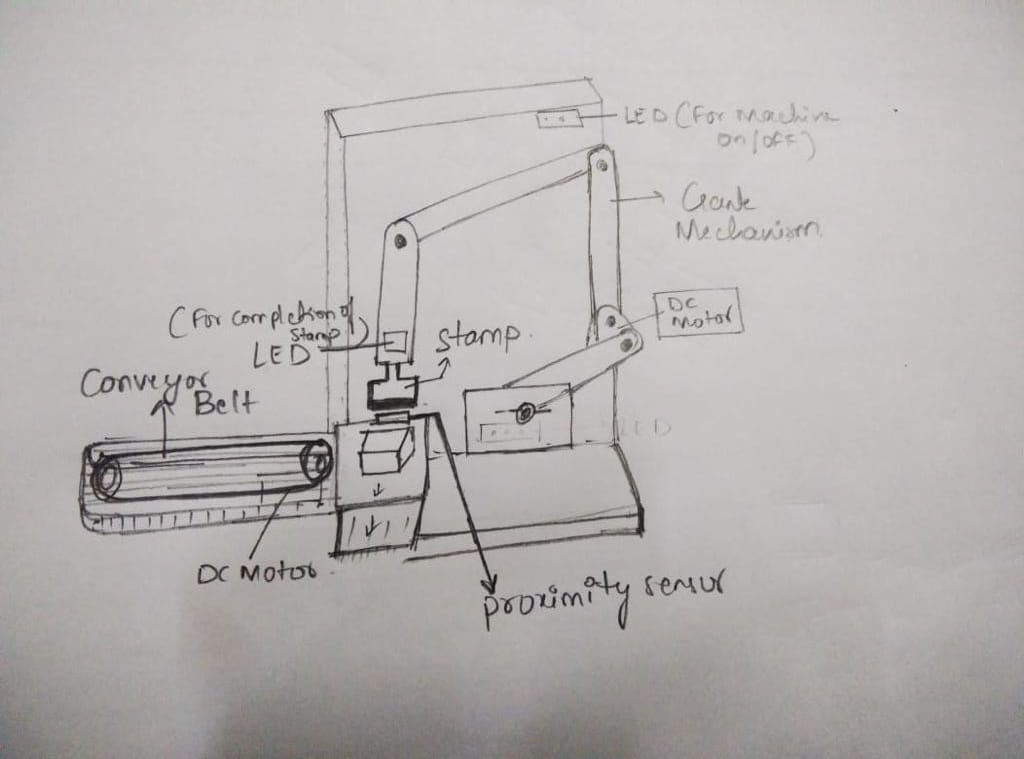 LED (For Machine
on/off)
Crank
Mechanism
DC
Motor
(For completion of
stamp)
LED
stamp.
Conveyor
Belt
LED
DC Motor
proximity sensor